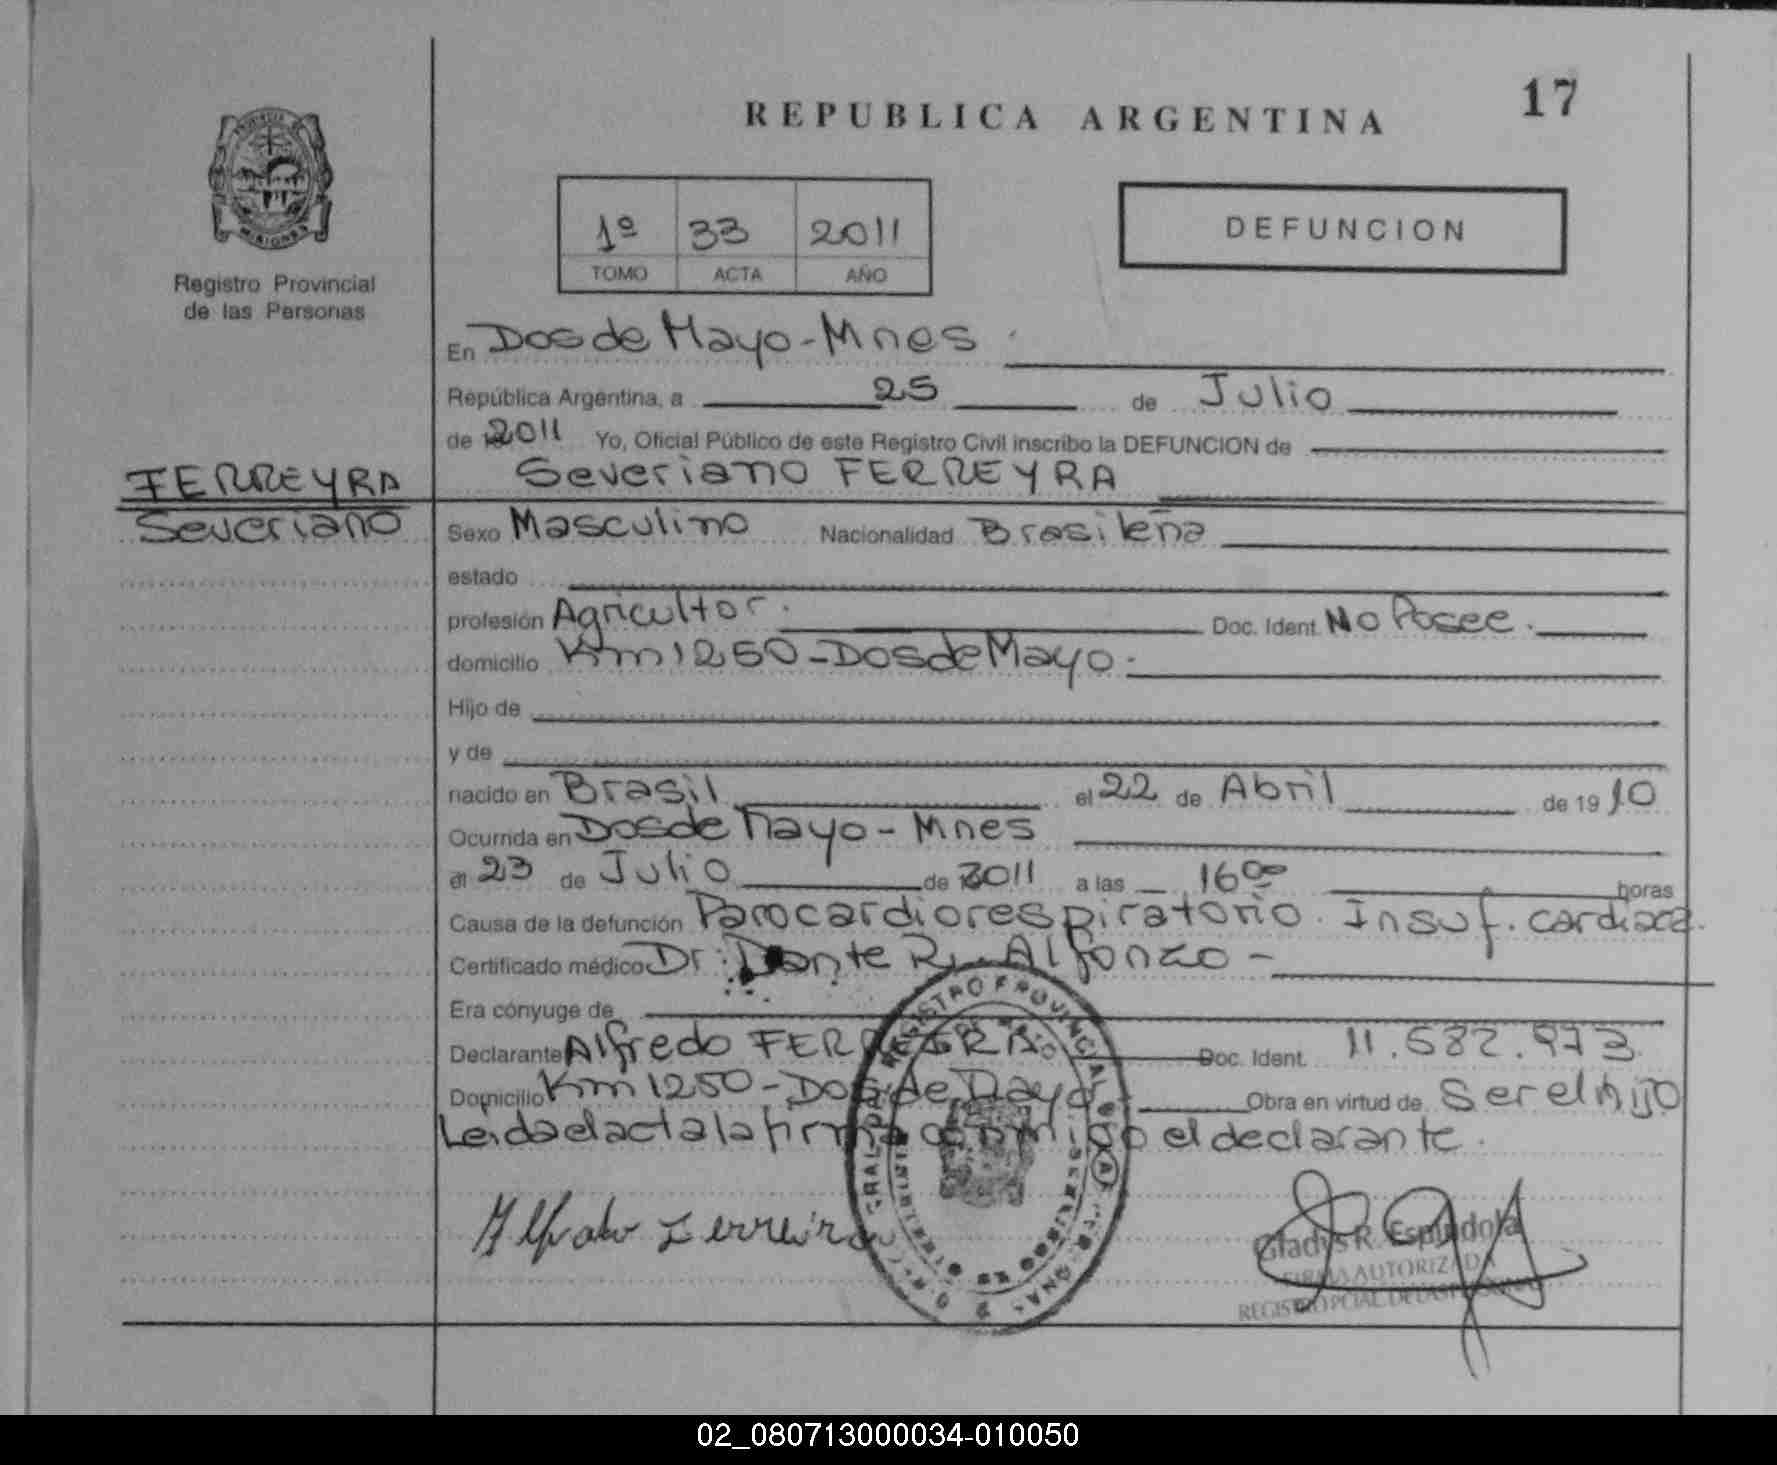 REPUBLICA ARGENTINA
17
PROVINCIA DE
MISIONES
Registro Provincial
de las Personas
1º 33 2011
TOMO ACTA AÑO
DEFUNCION
En Dos de Mayo-Mnes
República Argentina, a 25 de Julio
de 2011 Yo, Oficial Público de este Registro Civil inscribo la DEFUNCION de
Severiano FERREYRA
FERREYRA
Severiano
Sexo Masculino Nacionalidad Brasileña
estado
profesión Agricultor. Doc. Ident. No Posee.
domicilio Km 1250-Dos de Mayo.
Hijo de
y de
nacido en Brasil el 22 de Abril de 1910
Ocurrida en Dos de Mayo-Mnes
el 23 de Julio de 2011 a las 16 00 horas
Causa de la defunción Parocardiorespiratorio. Insuf. cardiaca.
Certificado médico Dr. Dante R. Alfonzo -
Era cónyuge de
Declarante Alfredo FERREYRA Doc. Ident. 11.682.973
Domicilio Km 1250-Dos de Mayo Obra en virtud de Ser el hijo
Leida el acta la firma conmigo el declarante.
REGISTRO PROVINCIAL
Gladys R. Espindola
FIRMA AUTORIZADA
02_080713000034-010050